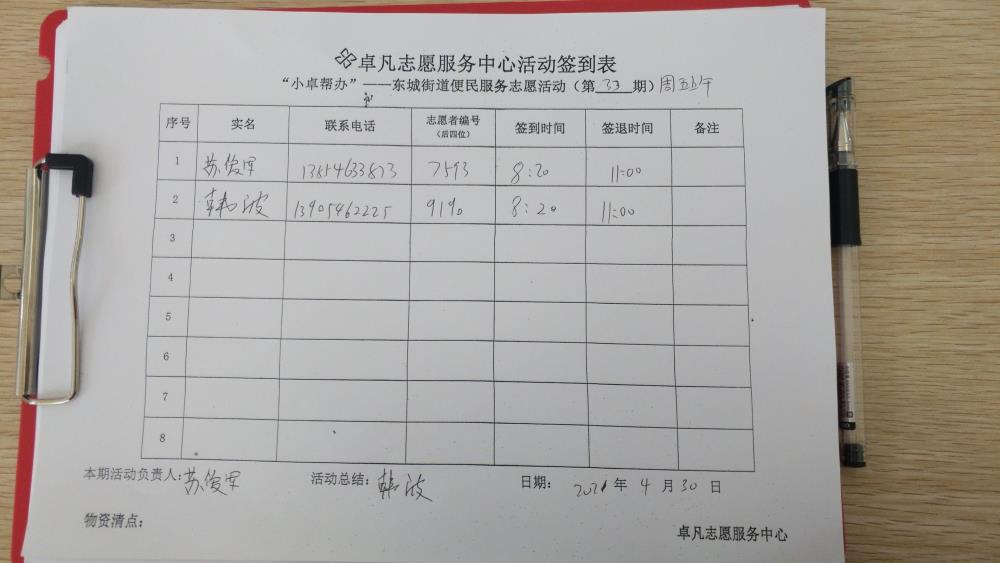 卓凡志愿服务中心活动签到表
“小卓帮办”——东城街道便民服务志愿活动（第 33 期）周五上午
序号 实名 联系电话 志愿者编号（后四位） 签到时间 签退时间 备注
1 苏俊军 13854633873 7593 8:20 11:00
2 韩波 13905462225 9190 8:20 11:00
3
4
5
6
7
8
本期活动负责人:苏俊军 活动总结:韩波 日期: 2021 年 4 月 30 日
物资清点:
卓凡志愿服务中心